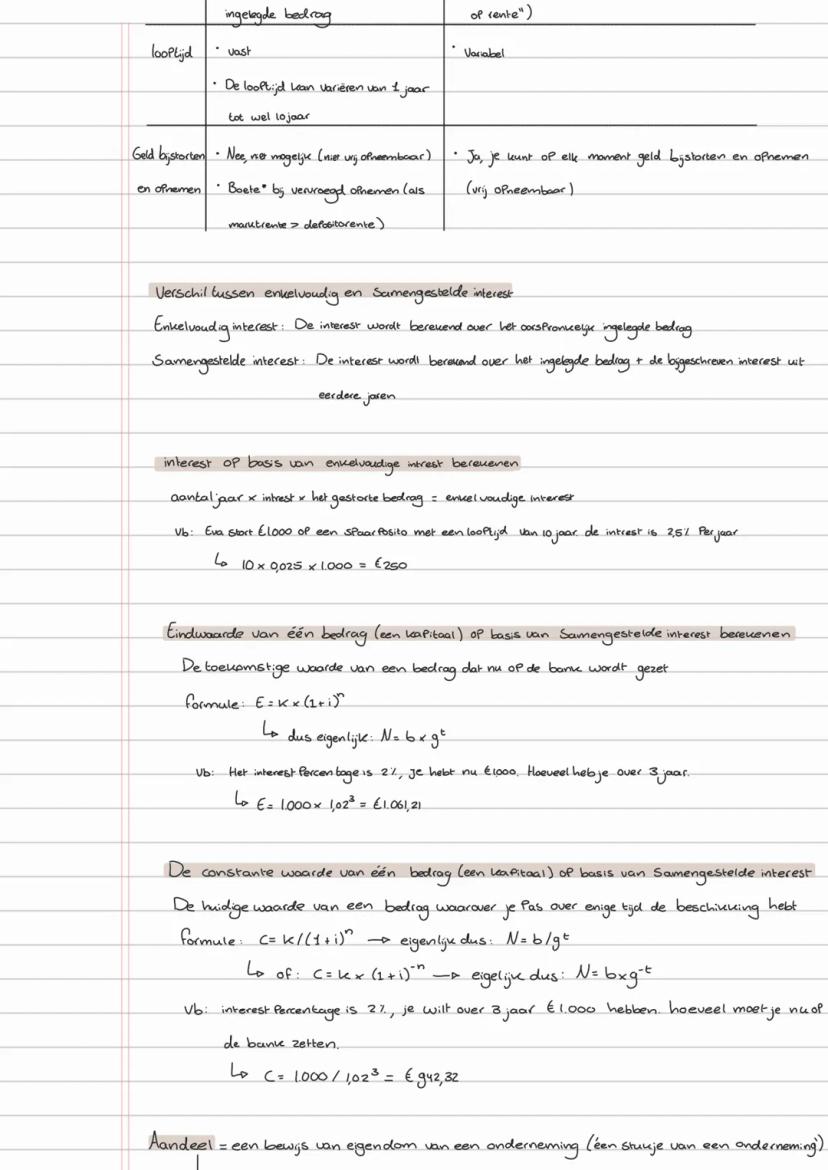 ingelegde bedrag
op rente")
looptijd
• vast
• Variabel
• De looptijd kan variëren van 1 jaar
tot wel 10 jaar
Geld bijstorten
en opnemen
• Nee, niet mogelijk (niet vrij opneembaar)
• Boete* bij vervroegd opnemen (als
marktrente > depositorente)
• Ja, je kunt op elk moment geld bijstorten en opnemen
(vrij opneembaar)
Verschil tussen enkelvoudig en Samengestelde interest
Enkelvoudig interest: De interest wordt berekend over het oorspronkelijk ingelegde bedrag
Samengestelde interest: De interest wordt berekend over het ingelegde bedrag + de bijgeschreven interest uit
eerdere jaren
interest op basis van enkelvoudige intrest berekenen
aantal jaar x intrest x het gestorte bedrag = enkelvoudige interest
Vb: Eva start €1000 op een spaarposito met een looptijd van 10 jaar. de intrest is 2,5% Per jaar
↳ 10 x 0,025 x 1.000 = €250
Eindwaarde van één bedrag (een kapitaal) op basis van Samengestelde interest berekenen
De toekomstige waarde van een bedrag dat nu op de bank wordt gezet
formule: E = K x (1+i)ⁿ
↳ dus eigenlijk: N = b x gᵗ
Vb: Het interest Percentage is 2%, je hebt nu €1.000. Hoeveel heb je over 3 jaar.
↳ E = 1.000 x 1,02³ = €1.061,21
De constante waarde van één bedrag (een kapitaal) op basis van Samengestelde interest
De huidige waarde van een bedrag waarover je Pas over enige tijd de beschikking hebt
formule: C = K/(1+i)ⁿ → eigenlijk dus: N = b/gᵗ
↳ of: C = K x (1+i)⁻ⁿ → eigelijk dus: N = b x g⁻ᵗ
Vb: interest Percentage is 2%, je wilt over 3 jaar €1.000 hebben. hoeveel moet je nu op
de bank zetten.
↳ C = 1.000 / 1,02³ = €942,32
Aandeel = een bewijs van eigendom van een onderneming (één stukje van een onderneming)